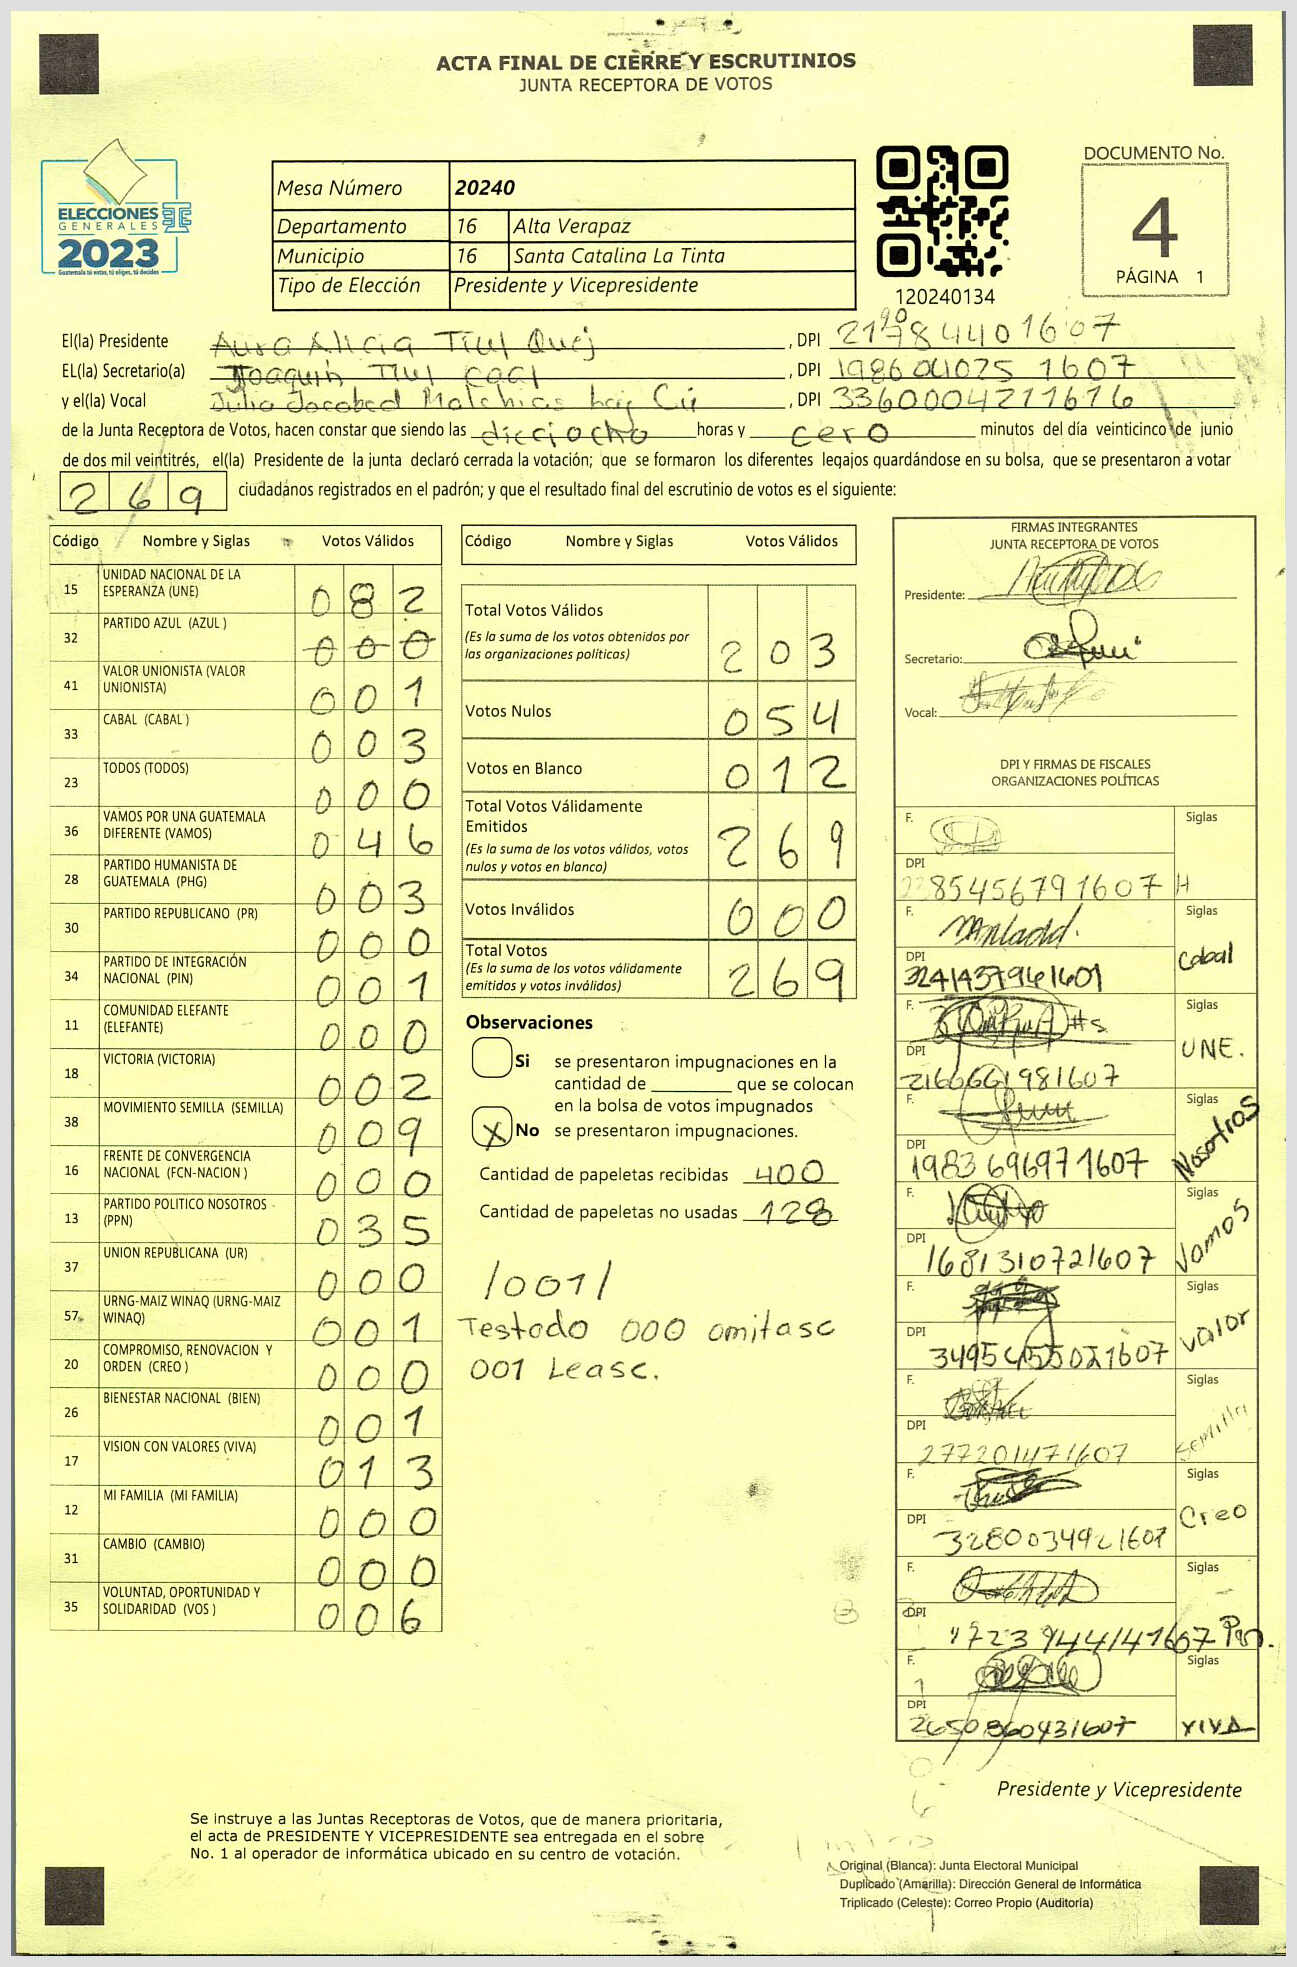 ACTA FINAL DE CIERRE Y ESCRUTINIOS
JUNTA RECEPTORA DE VOTOS
ELECCIONES
GENERALES
2023
Guatemala tú votas, tú eliges, tú decides
Mesa Número 20240
Departamento 16 Alta Verapaz
Municipio 16 Santa Catalina La Tinta
Tipo de Elección Presidente y Vicepresidente
120240134
DOCUMENTO No.
4
PÁGINA 1
El(la) Presidente Aura Alicia Tiul Quej, DPI
EL(la) Secretario(a) Joaquin Tiul Caal, DPI 198604025 1607
y el(la) Vocal Julia Jocabed Malchias Cú, DPI 3360004211616
de la Junta Receptora de Votos, hacen constar que siendo las dieciocho horas y cero minutos del día veinticinco de junio
de dos mil veintitrés, el(la) Presidente de la junta declaró cerrada la votación; que se formaron los diferentes legajos guardándose en su bolsa, que se presentaron a votar
269 ciudadanos registrados en el padrón; y que el resultado final del escrutinio de votos es el siguiente:
Código Nombre y Siglas Votos Válidos
15 UNIDAD NACIONAL DE LA ESPERANZA (UNE) 082
32 PARTIDO AZUL (AZUL ) 000
41 VALOR UNIONISTA (VALOR UNIONISTA) 001
33 CABAL (CABAL ) 003
23 TODOS (TODOS) 000
36 VAMOS POR UNA GUATEMALA DIFERENTE (VAMOS) 046
28 PARTIDO HUMANISTA DE GUATEMALA (PHG) 003
30 PARTIDO REPUBLICANO (PR) 000
34 PARTIDO DE INTEGRACIÓN NACIONAL (PIN) 001
11 COMUNIDAD ELEFANTE (ELEFANTE) 000
18 VICTORIA (VICTORIA) 002
38 MOVIMIENTO SEMILLA (SEMILLA) 009
16 FRENTE DE CONVERGENCIA NACIONAL (FCN-NACION ) 000
13 PARTIDO POLITICO NOSOTROS - (PPN) 035
37 UNION REPUBLICANA (UR) 000
57 URNG-MAIZ WINAQ (URNG-MAIZ WINAQ) 001
20 COMPROMISO, RENOVACION Y ORDEN (CREO ) 000
26 BIENESTAR NACIONAL (BIEN) 001
17 VISION CON VALORES (VIVA) 013
12 MI FAMILIA (MI FAMILIA) 000
31 CAMBIO (CAMBIO) 000
35 VOLUNTAD, OPORTUNIDAD Y SOLIDARIDAD (VOS ) 006
Código Nombre y Siglas Votos Válidos
Total Votos Válidos 203
(Es la suma de los votos obtenidos por
las organizaciones políticas)
Votos Nulos 054
Votos en Blanco 012
Total Votos Válidamente
Emitidos 269
(Es la suma de los votos válidos, votos
nulos y votos en blanco)
Votos Inválidos 000
Total Votos 269
(Es la suma de los votos válidamente
emitidos y votos inválidos)
Observaciones
Si se presentaron impugnaciones en la
cantidad de ________ que se colocan
en la bolsa de votos impugnados
X No se presentaron impugnaciones.
Cantidad de papeletas recibidas 400
Cantidad de papeletas no usadas 128
/001/
Testado 000 omitase
001 Lease.
FIRMAS INTEGRANTES
JUNTA RECEPTORA DE VOTOS
Presidente:
Secretario:
Vocal:
DPI Y FIRMAS DE FISCALES
ORGANIZACIONES POLÍTICAS
F. Siglas
DPI
2285456791607 H
F. Siglas
Cabal
DPI
3241437961601
F. Siglas
UNE.
DPI
2166661981607
F. Siglas
Nosotros
DPI
1983696971607
F. Siglas
Vamos
DPI
1681310721607
F. Siglas
Valor
DPI
F. Siglas
Semilla
DPI
277201471607
F. Siglas
Creo
DPI
3280034921601
F. Siglas
DPI
F. Siglas
DPI
2650860431607 VIVA
Presidente y Vicepresidente
Se instruye a las Juntas Receptoras de Votos, que de manera prioritaria,
el acta de PRESIDENTE Y VICEPRESIDENTE sea entregada en el sobre
No. 1 al operador de informática ubicado en su centro de votación.
Original (Blanca): Junta Electoral Municipal
Duplicado (Amarilla): Dirección General de Informática
Triplicado (Celeste): Correo Propio (Auditoría)